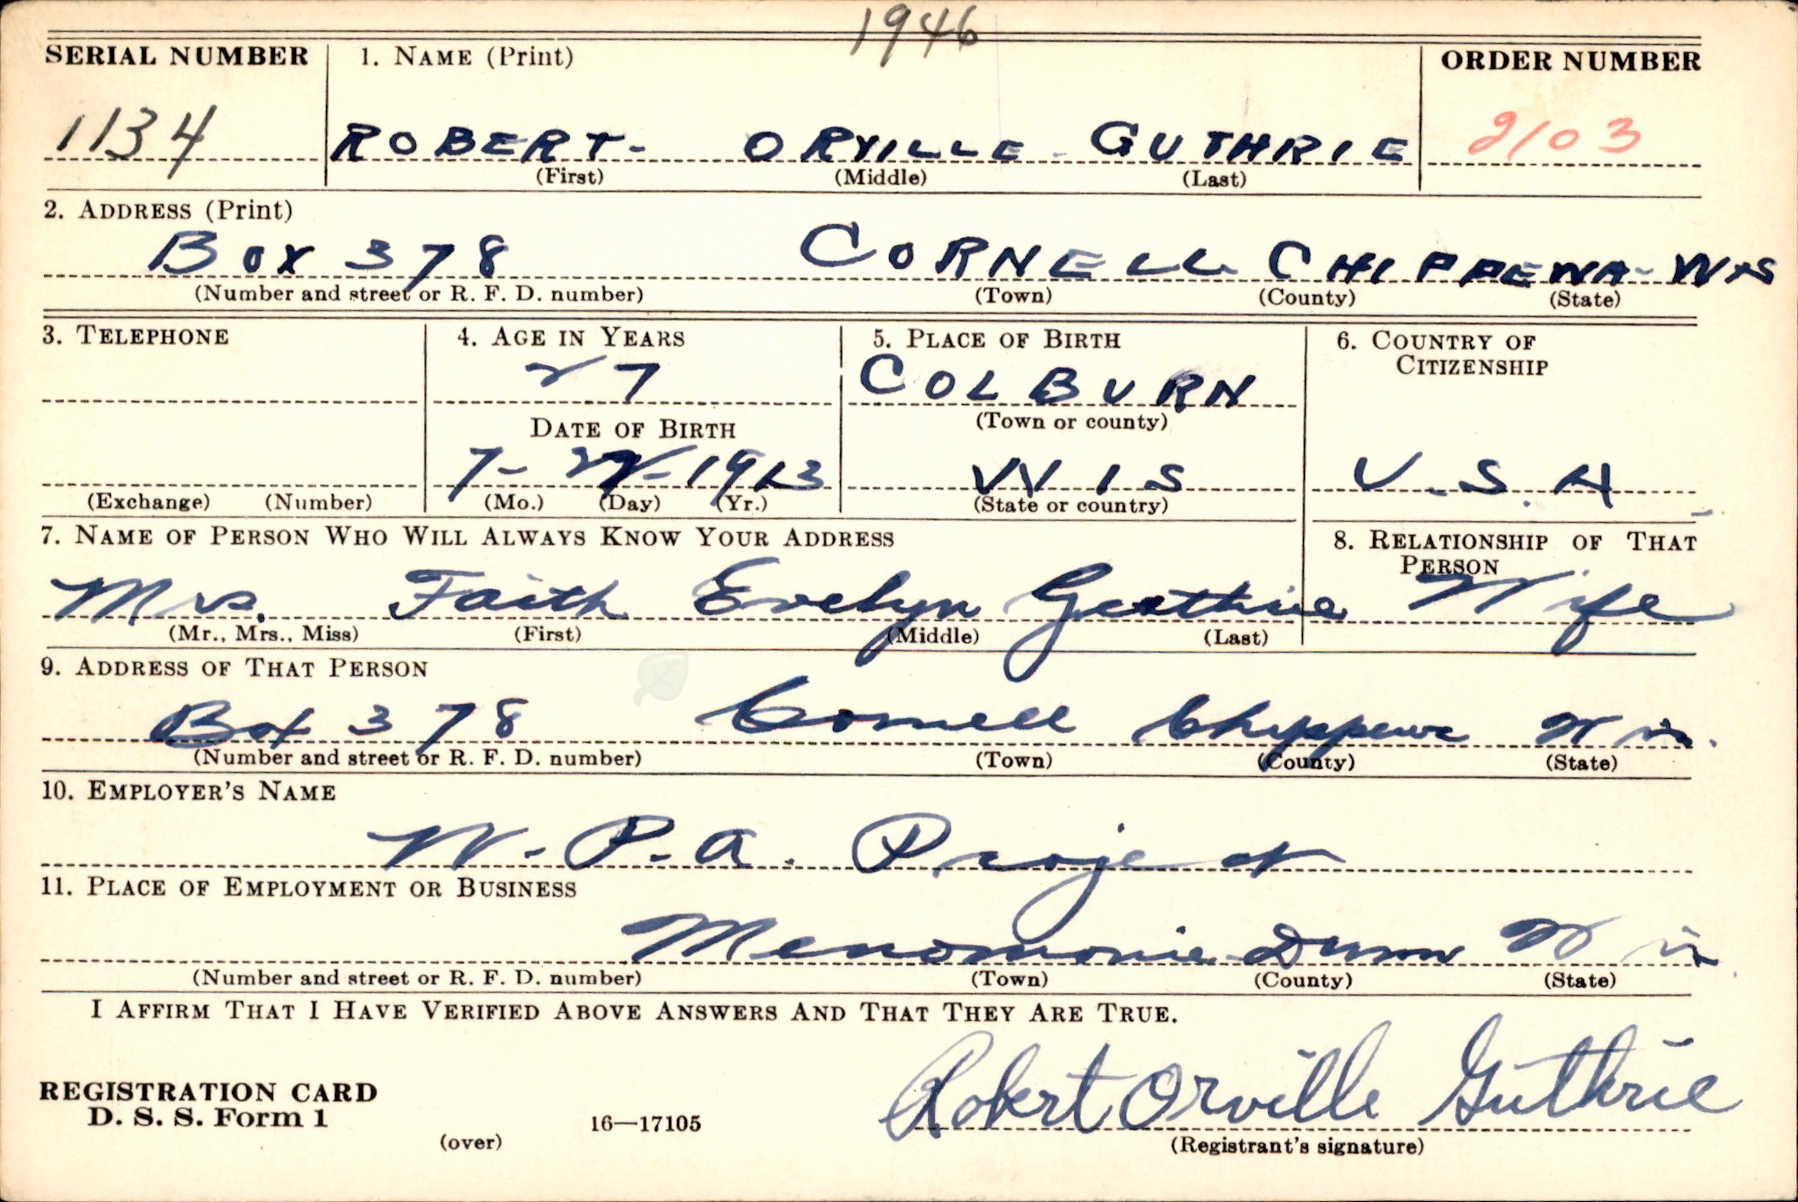 1946
SERIAL NUMBER 1. NAME (Print) ORDER NUMBER
1134 ROBERT- ORVILLE GUTHRIE 2103
(First) (Middle) (Last)
2. ADDRESS (Print)
BOX 378 CORNELL CHIPPEWA- WIS
(Number and street or R. F. D. number) (Town) (County) (State)
3. TELEPHONE 4. AGE IN YEARS 5. PLACE OF BIRTH 6. COUNTRY OF CITIZENSHIP
27 COLBURN
DATE OF BIRTH (Town or county)
7- -1913 WIS U.S.A.
(Exchange) (Number) (Mo.) (Day) (Yr.) (State or country)
7. NAME OF PERSON WHO WILL ALWAYS KNOW YOUR ADDRESS 8. RELATIONSHIP OF THAT PERSON
Mrs. Faith Evelyn Guthrie Wife
(Mr., Mrs., Miss) (First) (Middle) (Last)
9. ADDRESS OF THAT PERSON
Box 378 Cornell Chippewa Wis.
(Number and street or R. F. D. number) (Town) (County) (State)
10. EMPLOYER'S NAME
W.P.A. Project
11. PLACE OF EMPLOYMENT OR BUSINESS
Menomonie Dunn Wis
(Number and street or R. F. D. number) (Town) (County) (State)
I AFFIRM THAT I HAVE VERIFIED ABOVE ANSWERS AND THAT THEY ARE TRUE.
Robert Orville Guthrie
REGISTRATION CARD
D. S. S. Form 1 16—17105
(over) (Registrant's signature)